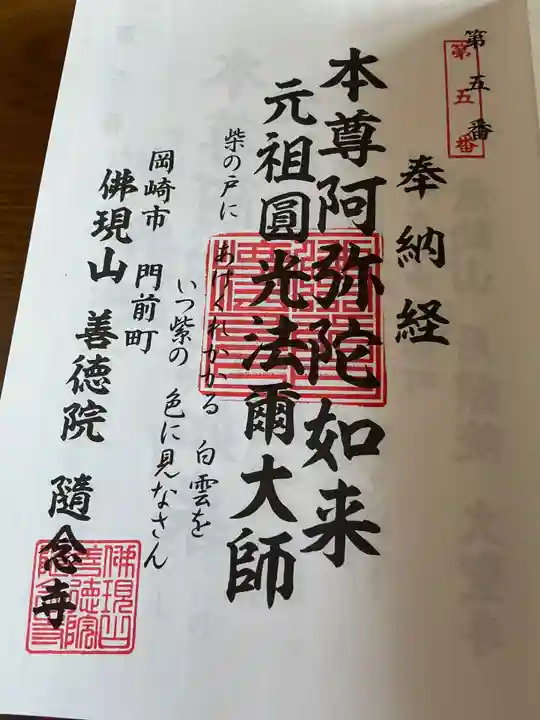 第五番
第五番
奉納経
本尊阿弥陀如来
元祖圓光法爾大師
柴の戸に あけくれかかる 白雲を
いつ紫の 色に見なさん
岡崎市 門前町
佛現山 善徳院 隨念寺
佛現山
善徳院
隨念寺